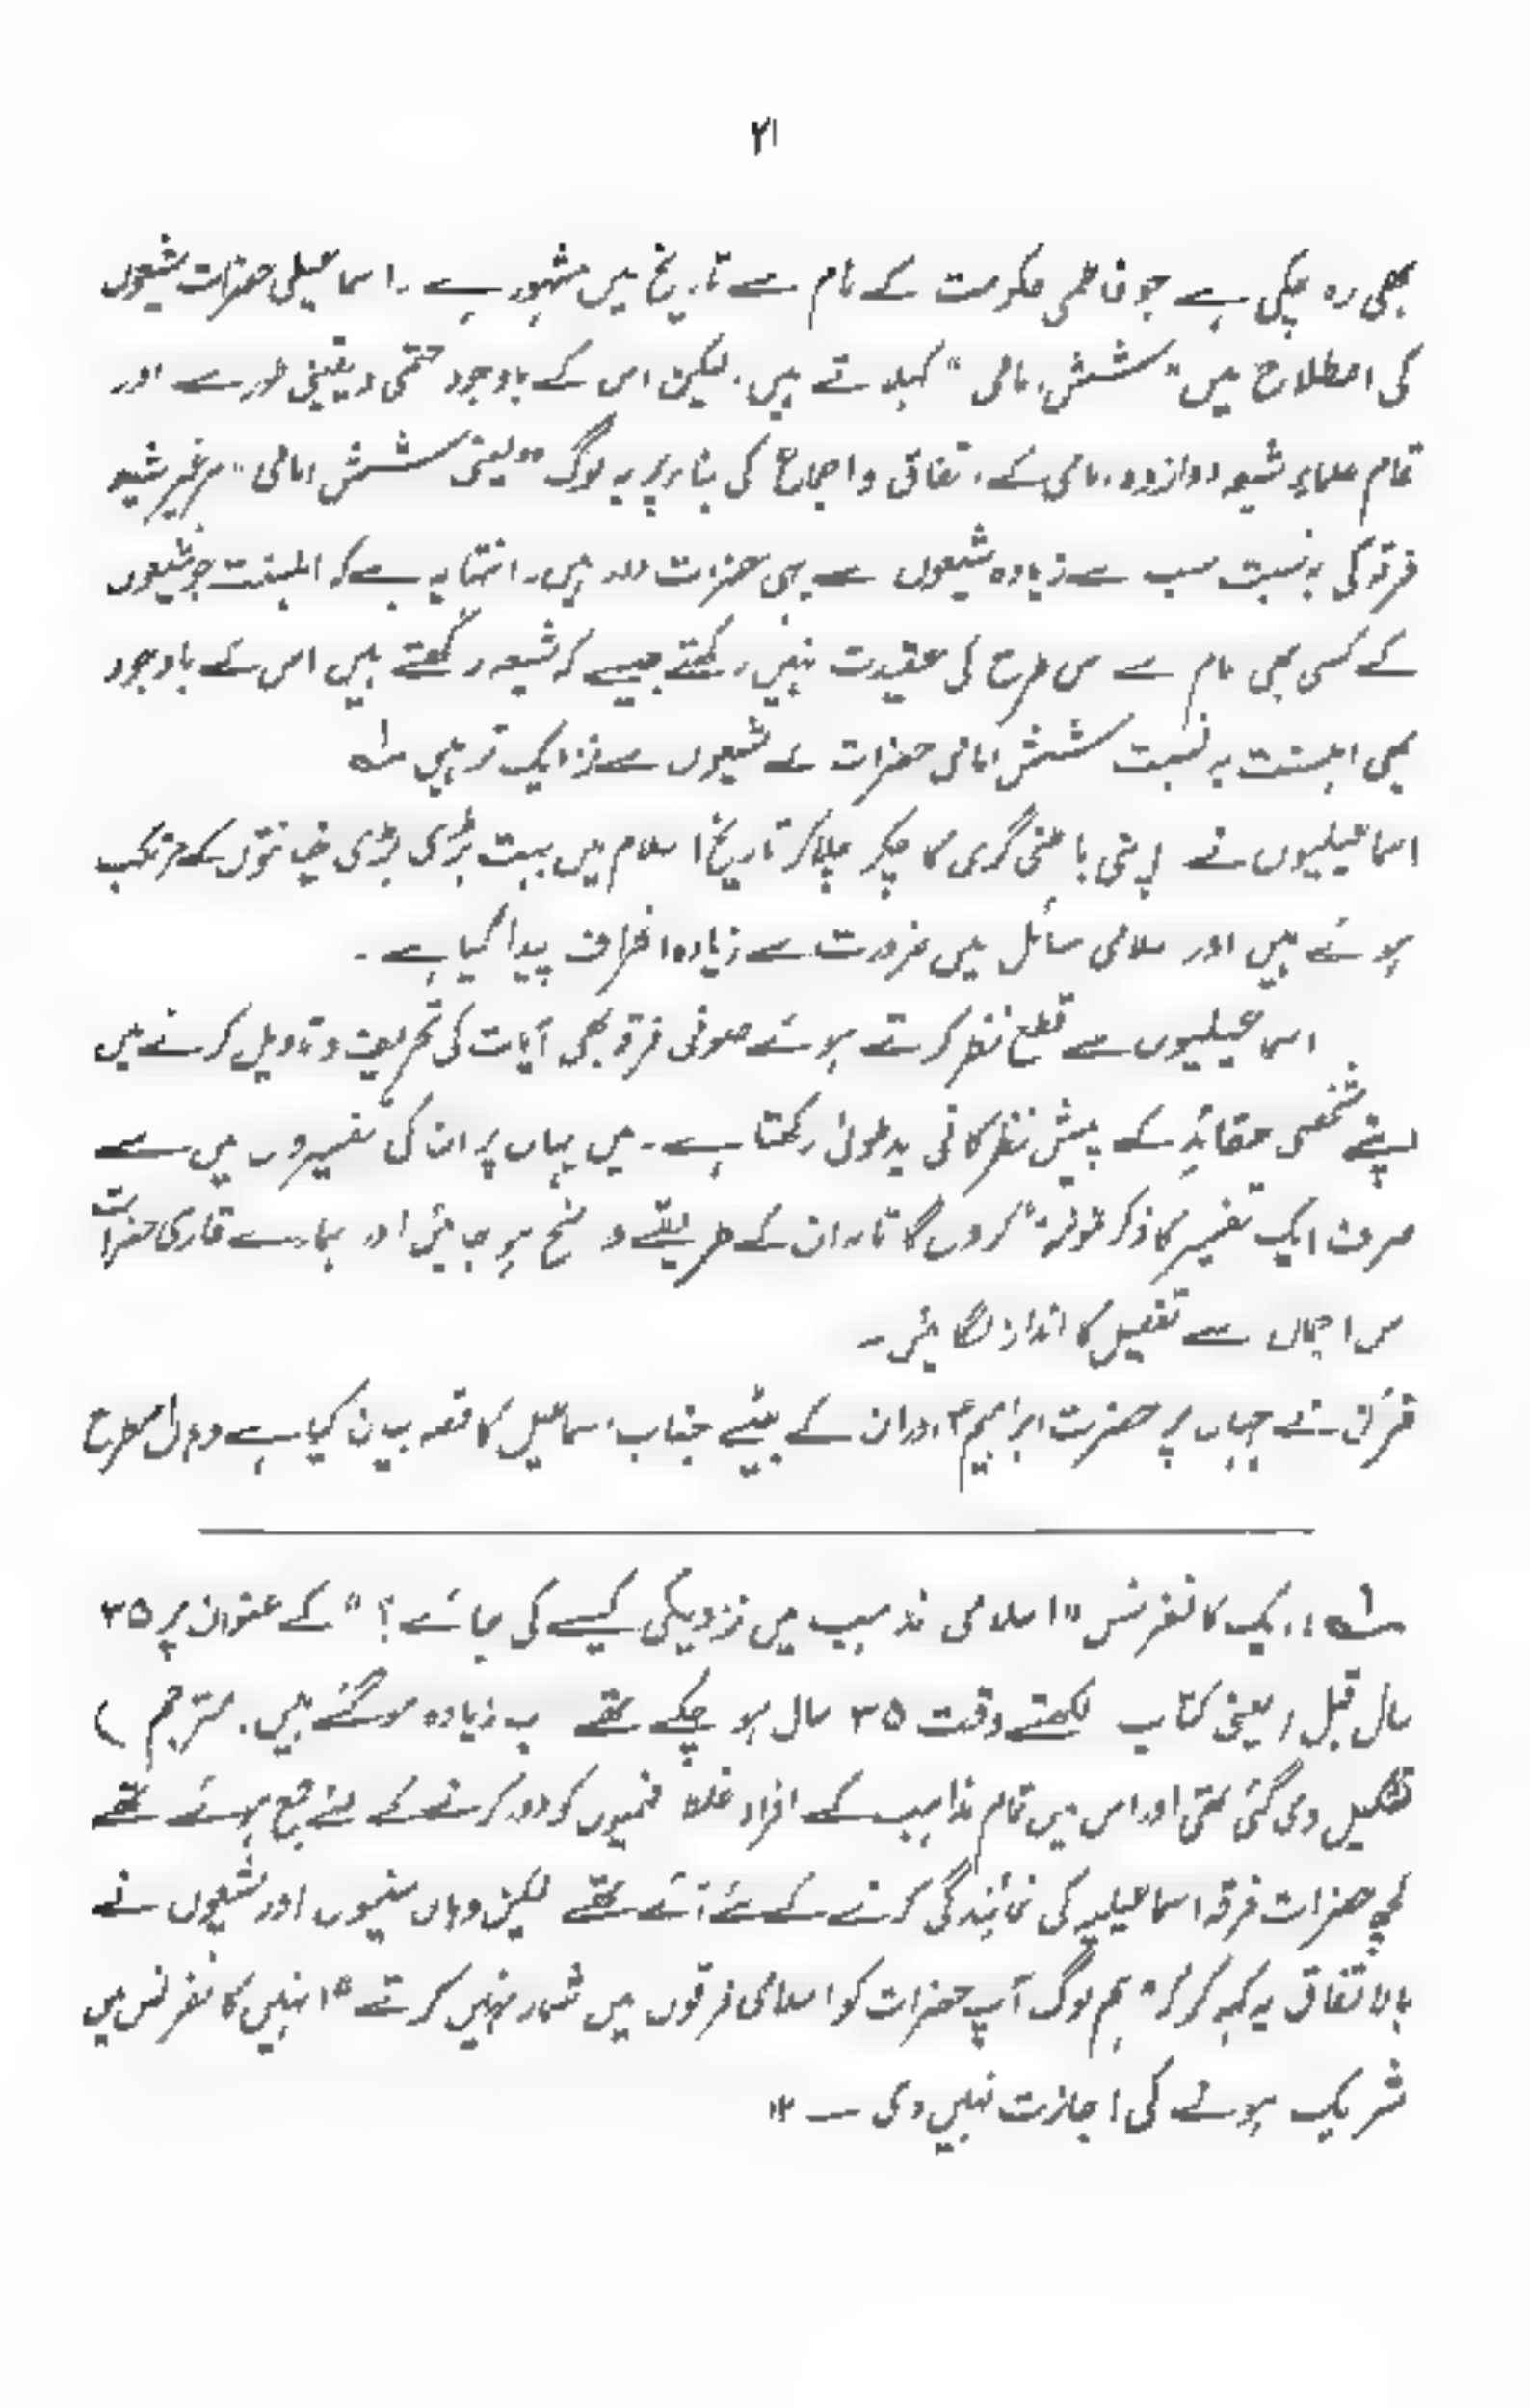 ۲۱
بھی رہ چکی ہے جو فاطمی حکومت کے نام سے تاریخ میں مشہور ہے ۔ اسماعیلی حضرات شیعوں
کی اصطلاح میں " شش امامی " کہلاتے ہیں۔ لیکن اس کے باوجود حتمی و یقینی طور سے اور
تمام علماء شیعہ دوازدہ امامی کے اتفاق و اجماع کی بناء پر یہ لوگ " یعنی شش امامی " ہر غیر شیعہ
فرقہ کی بہ نسبت سب سے زیادہ شیعوں سے یہی حضرات دور ہیں ۔ انتہا یہ ہے کہ اہلسنت جو شیعوں
کے کسی بھی امام سے اس طرح کی عقیدت نہیں رکھتے جیسے کہ شیعہ رکھتے ہیں اس کے باوجود
بھی اہلسنت بہ نسبت شش امامی حضرات کے شیعوں سے نزدیک تر ہیں ؎۱
اسماعیلیوں نے اپنی باطنی گری کا چکر چلا کر تاریخ اسلام میں بہت بڑی بڑی خیانتوں کے مرتکب
ہوئے ہیں اور اسلامی مسائل میں ضرورت سے زیادہ انحراف پیدا کیا ہے ۔
اسماعیلیوں سے قطع نظر کرتے ہوئے صوفی فرقہ بھی آیات کی تحریف و تاویل کرنے میں
اپنے شخصی عقائد کے پیش نظر کافی ید طولیٰ رکھتا ہے ۔ میں یہاں پر ان کی تفسیروں میں سے
صرف ایک تفسیر کا ذکر نمونۃً کروں گا تاکہ ان کے طریقے واضح ہو جائیں اور ہمارے قاری حضرات
اس اجمال سے تفصیل کا اندازہ لگائیں ۔
قرآن نے جہاں پر حضرت ابراہیمؑ اور ان کے بیٹے جناب اسماعیل کا قصہ بیان کیا ہے وہ اس طرح
؎۱ ایک کانفرنس " اسلامی مذاہب میں نزدیکی کیسے کی جائے ؟ " کے عنوان پر ۳۵
سال قبل ( یعنی کتاب لکھتے وقت ۳۵ سال ہو چکے تھے اب زیادہ ہو گئے ہیں ۔ مترجم )
تشکیل دی گئی تھی اور اس میں تمام مذاہب کے افراد غلط فہمیوں کو دور کرنے کے لئے جمع ہوئے تھے
کچھ حضرات فرقہ اسماعیلیہ کی نمائندگی کرنے کے لئے آئے تھے لیکن وہاں سنیوں اور شیعوں نے
بالاتفاق یہ کہہ کر کہ " ہم لوگ آپ حضرات کو اسلامی فرقوں میں شمار نہیں کرتے " انہیں کانفرنس میں
شریک ہونے کی اجازت نہیں دی ۔ ۱۲